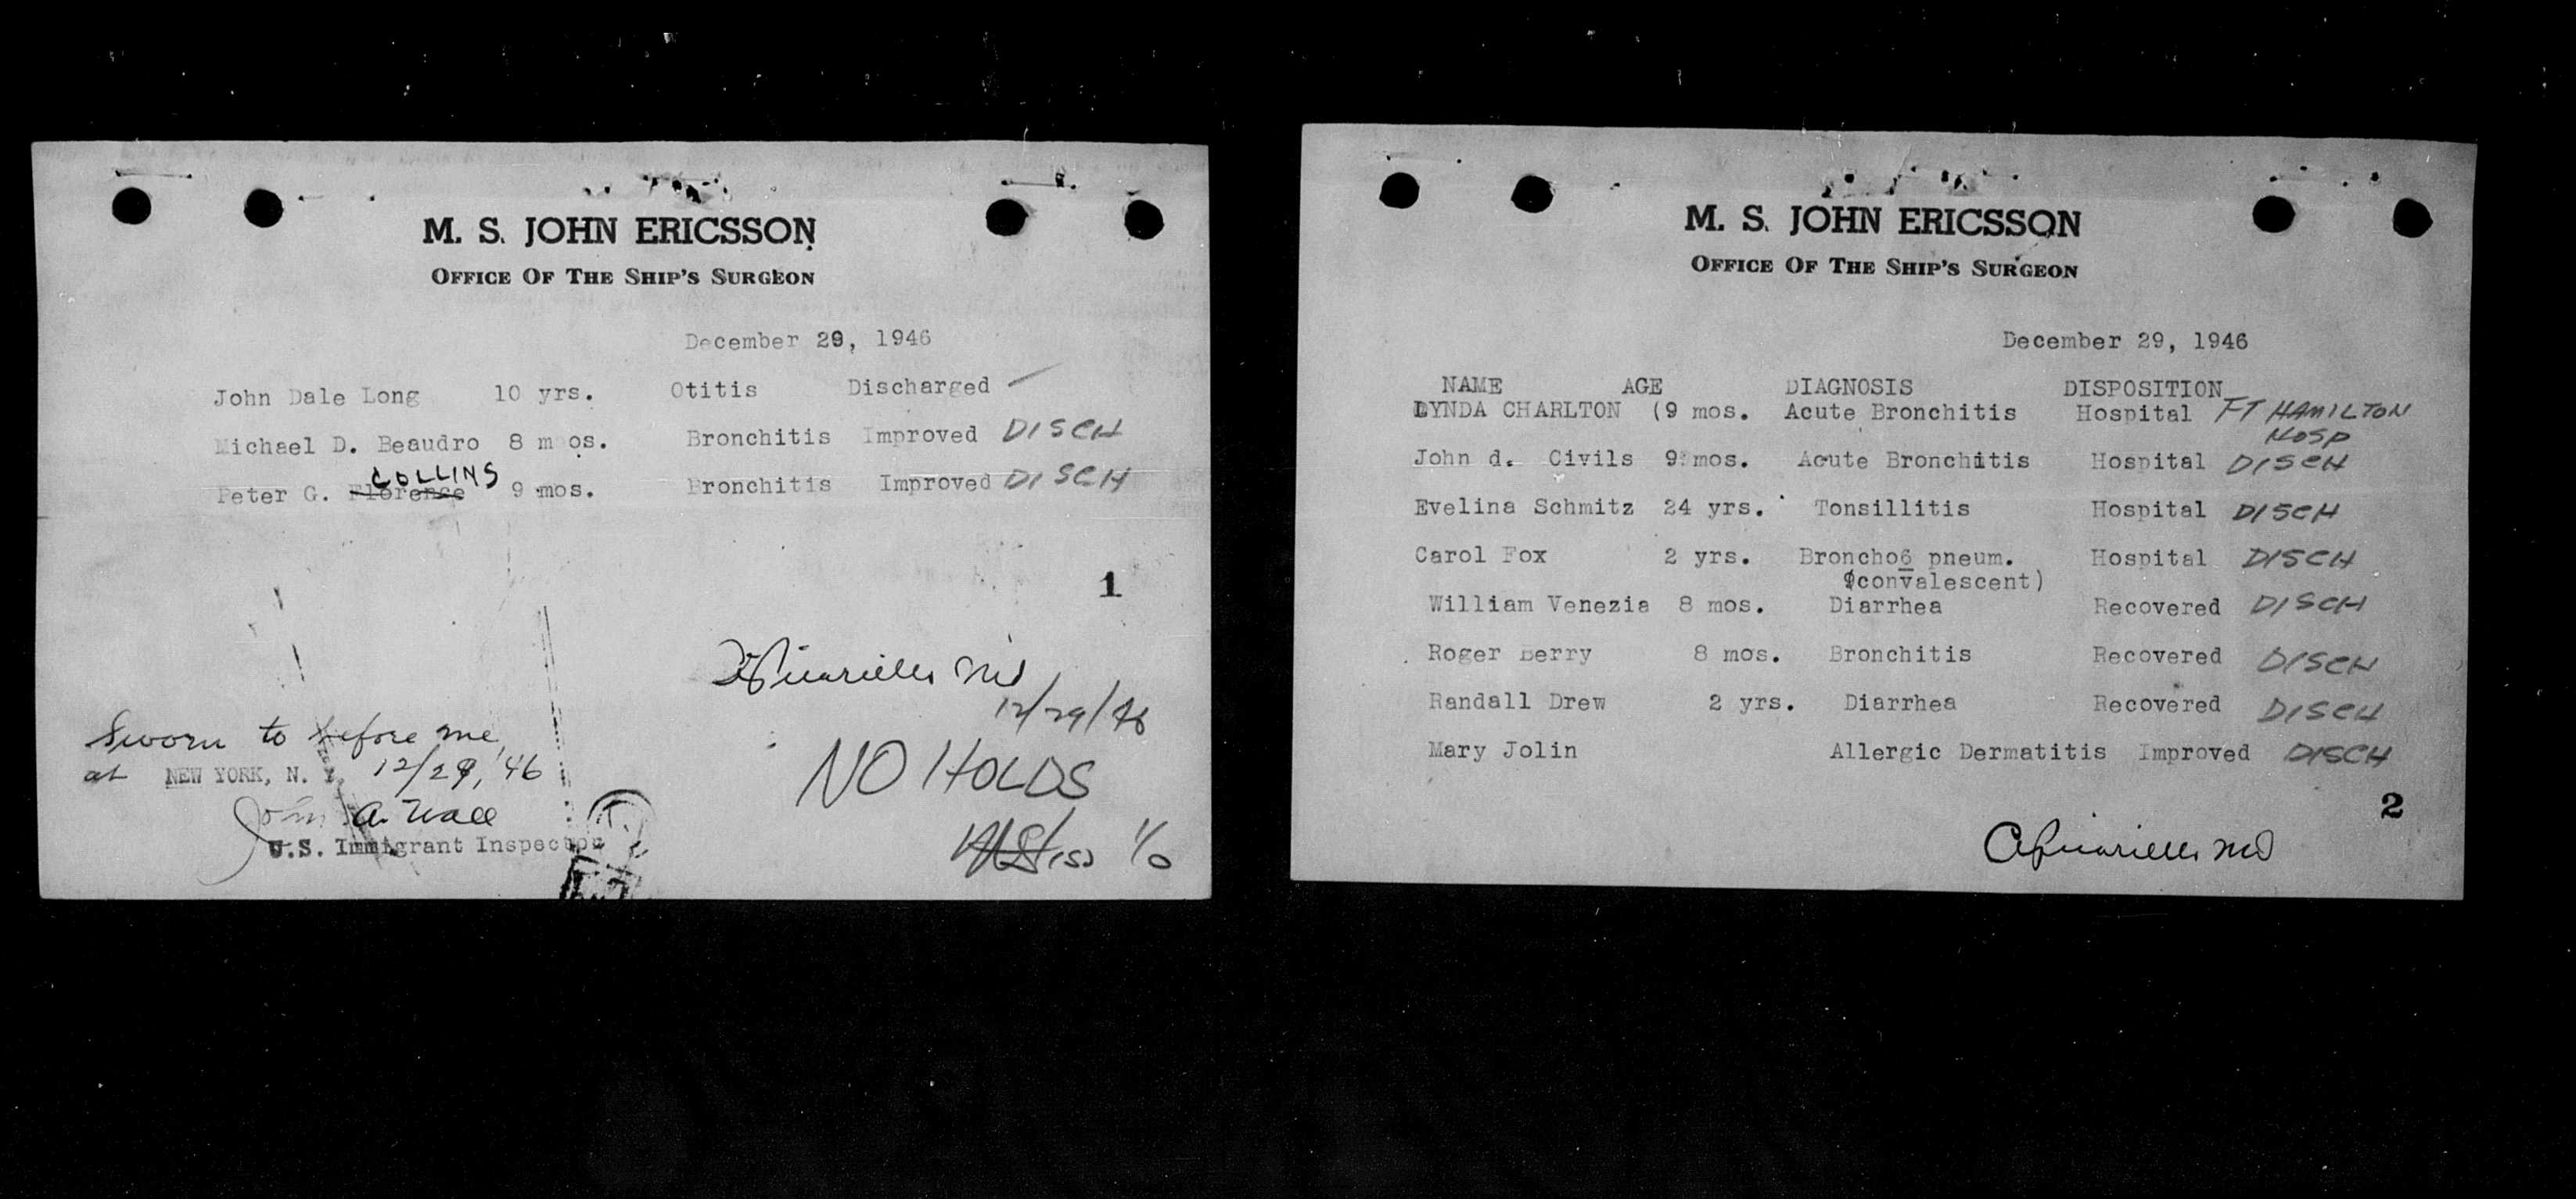 M. S. JOHN ERICSSON
OFFICE OF THE SHIP'S SURGEON
December 29, 1946
John Dale Long 10 yrs. Otitis Discharged
Michael D. Beaudro 8 m os. Bronchitis Improved DISCH
COLLINS
Peter G. Florence 9 mos. Bronchitis Improved DISCH
1
MD
12/29/46
Sworn to before me,
at NEW YORK, N. Y. 12/29, '46
John A. Wall
U.S. Immigrant Inspector
NO HOLDS
M. S. JOHN ERICSSON
OFFICE OF THE SHIP'S SURGEON
December 29, 1946
NAME AGE DIAGNOSIS DISPOSITION
LYNDA CHARLTON (9 mos. Acute Bronchitis Hospital FT HAMILTON
HOSP
John d. Civils 9 mos. Acute Bronchitis Hospital DISCH
Evelina Schmitz 24 yrs. Tonsillitis Hospital DISCH
Carol Fox 2 yrs. Broncho6 pneum. Hospital DISCH
(convalescent)
William Venezia 8 mos. Diarrhea Recovered DISCH
Roger Berry 8 mos. Bronchitis Recovered DISCH
Randall Drew 2 yrs. Diarrhea Recovered DISCH
Mary Jolin Allergic Dermatitis Improved DISCH
2
MD